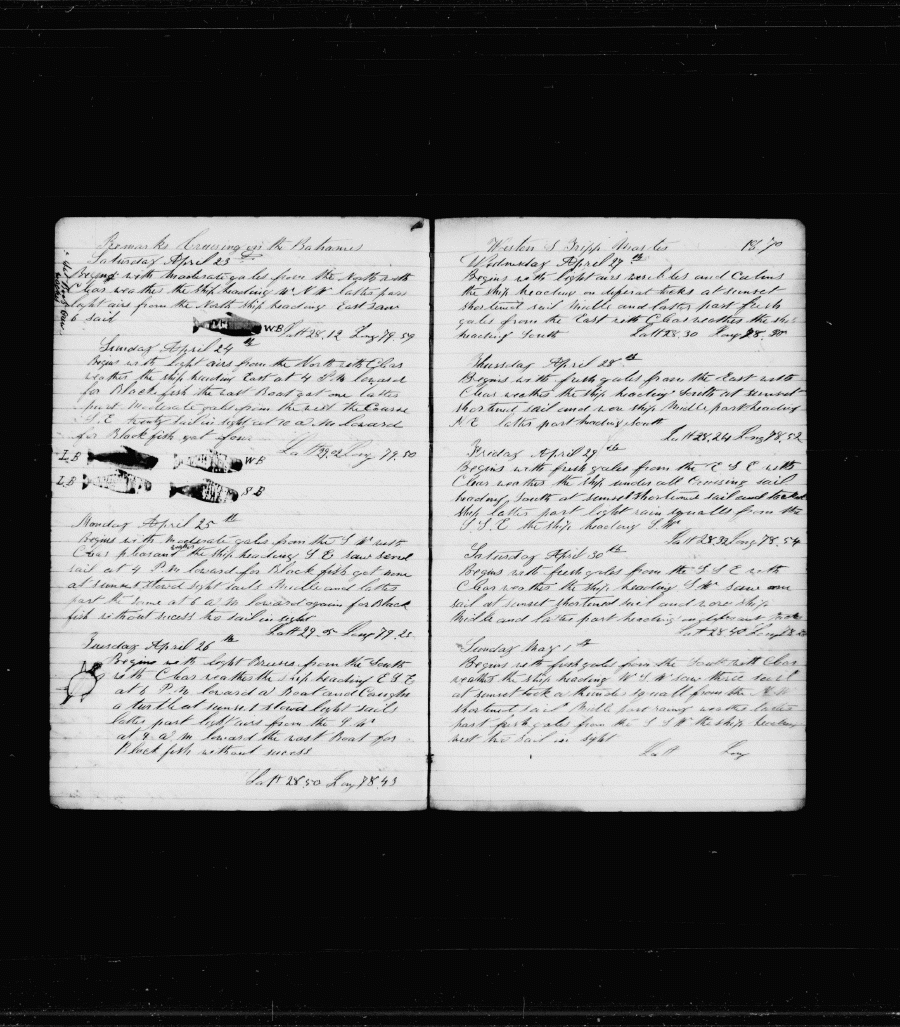 Remarks Cruising in the Bahames
Saturday April 23
Begins with Moderate gales from the North with
Clear weather the ship heading W N W latter part
light airs from the North ship heading East saw
6 sail
WB Latt 28.12 Long 79.59
Sunday April 24th
Begins with light airs from the North with Clear
weather the ship heading East at 4 P.M lowered
for Black fish the wast Boat got one latter
part Moderate gales from the west the Course
S.E. twenty sail in sight at 10 A M lowered
for Black fish got four
Latt 29.02 Long 79.50
LB WB
LB SB
Monday April 25th
Begins with Moderate gales from the S W with
Clear pleasant weather the ship heading S E saw
sail at 4 P.M lowered for Black fish got none
at sunset stowed light sails Middle and latter
part the same at 6 a M lowered again for Black
fish without sucess no sail in sight
Latt 29.05 Long 79.23
Tuesday April 26th
Begins with light Breeses from the South
with Clear weather the ship heading E S E
at 6 P.M lowered a Boat and Caught
a turtle at sunset stowed light sails
latter part light airs from the S W
at 4 a M lowered the wast Boat for
Black fish without sucess
Latt 28.50 Long 78.43
Weston S Tripp Master 1870
Wednesday April 27th
Begins with light airs and Calms
the ship heading on diferant tacks at sunset
shortened sail Middle and latter part fresh
gales from the East with Clear weather the ship
heading South Latt 28.30 Long 78.
Thursday April 28th
Begins with fresh gales from the East with
Clear weather the ship heading South at sunset
shortened sail and wore ship Middle part heading
N E latter part heading South
Latt 28.24 Long 78.52
Friday April 29th
Begins with fresh gales from the E S E with
Clear weather the ship under all Cruising sail
heading South at sunset shortened sail and tacked
ship latter part light rain squalls from the
S S E the ship heading S W
Latt 28.32 Long 78.54
Saturday April 30th
Begins with fresh gales from the S S E with
Clear weather the ship heading S W saw one
sail at sunset shortened sail and wore ship
Middle and latter part heading
Latt 28.40 Long 78
Sunday May 1th
Begins with fresh gales from the South with Clear
weather the ship heading W S W saw three sail
at sunset took a thunder squall from the N W
shortened sail Middle part rainy weather latter
part fresh gales from the S S W the ship heading
west two sail in sight
Latt Long